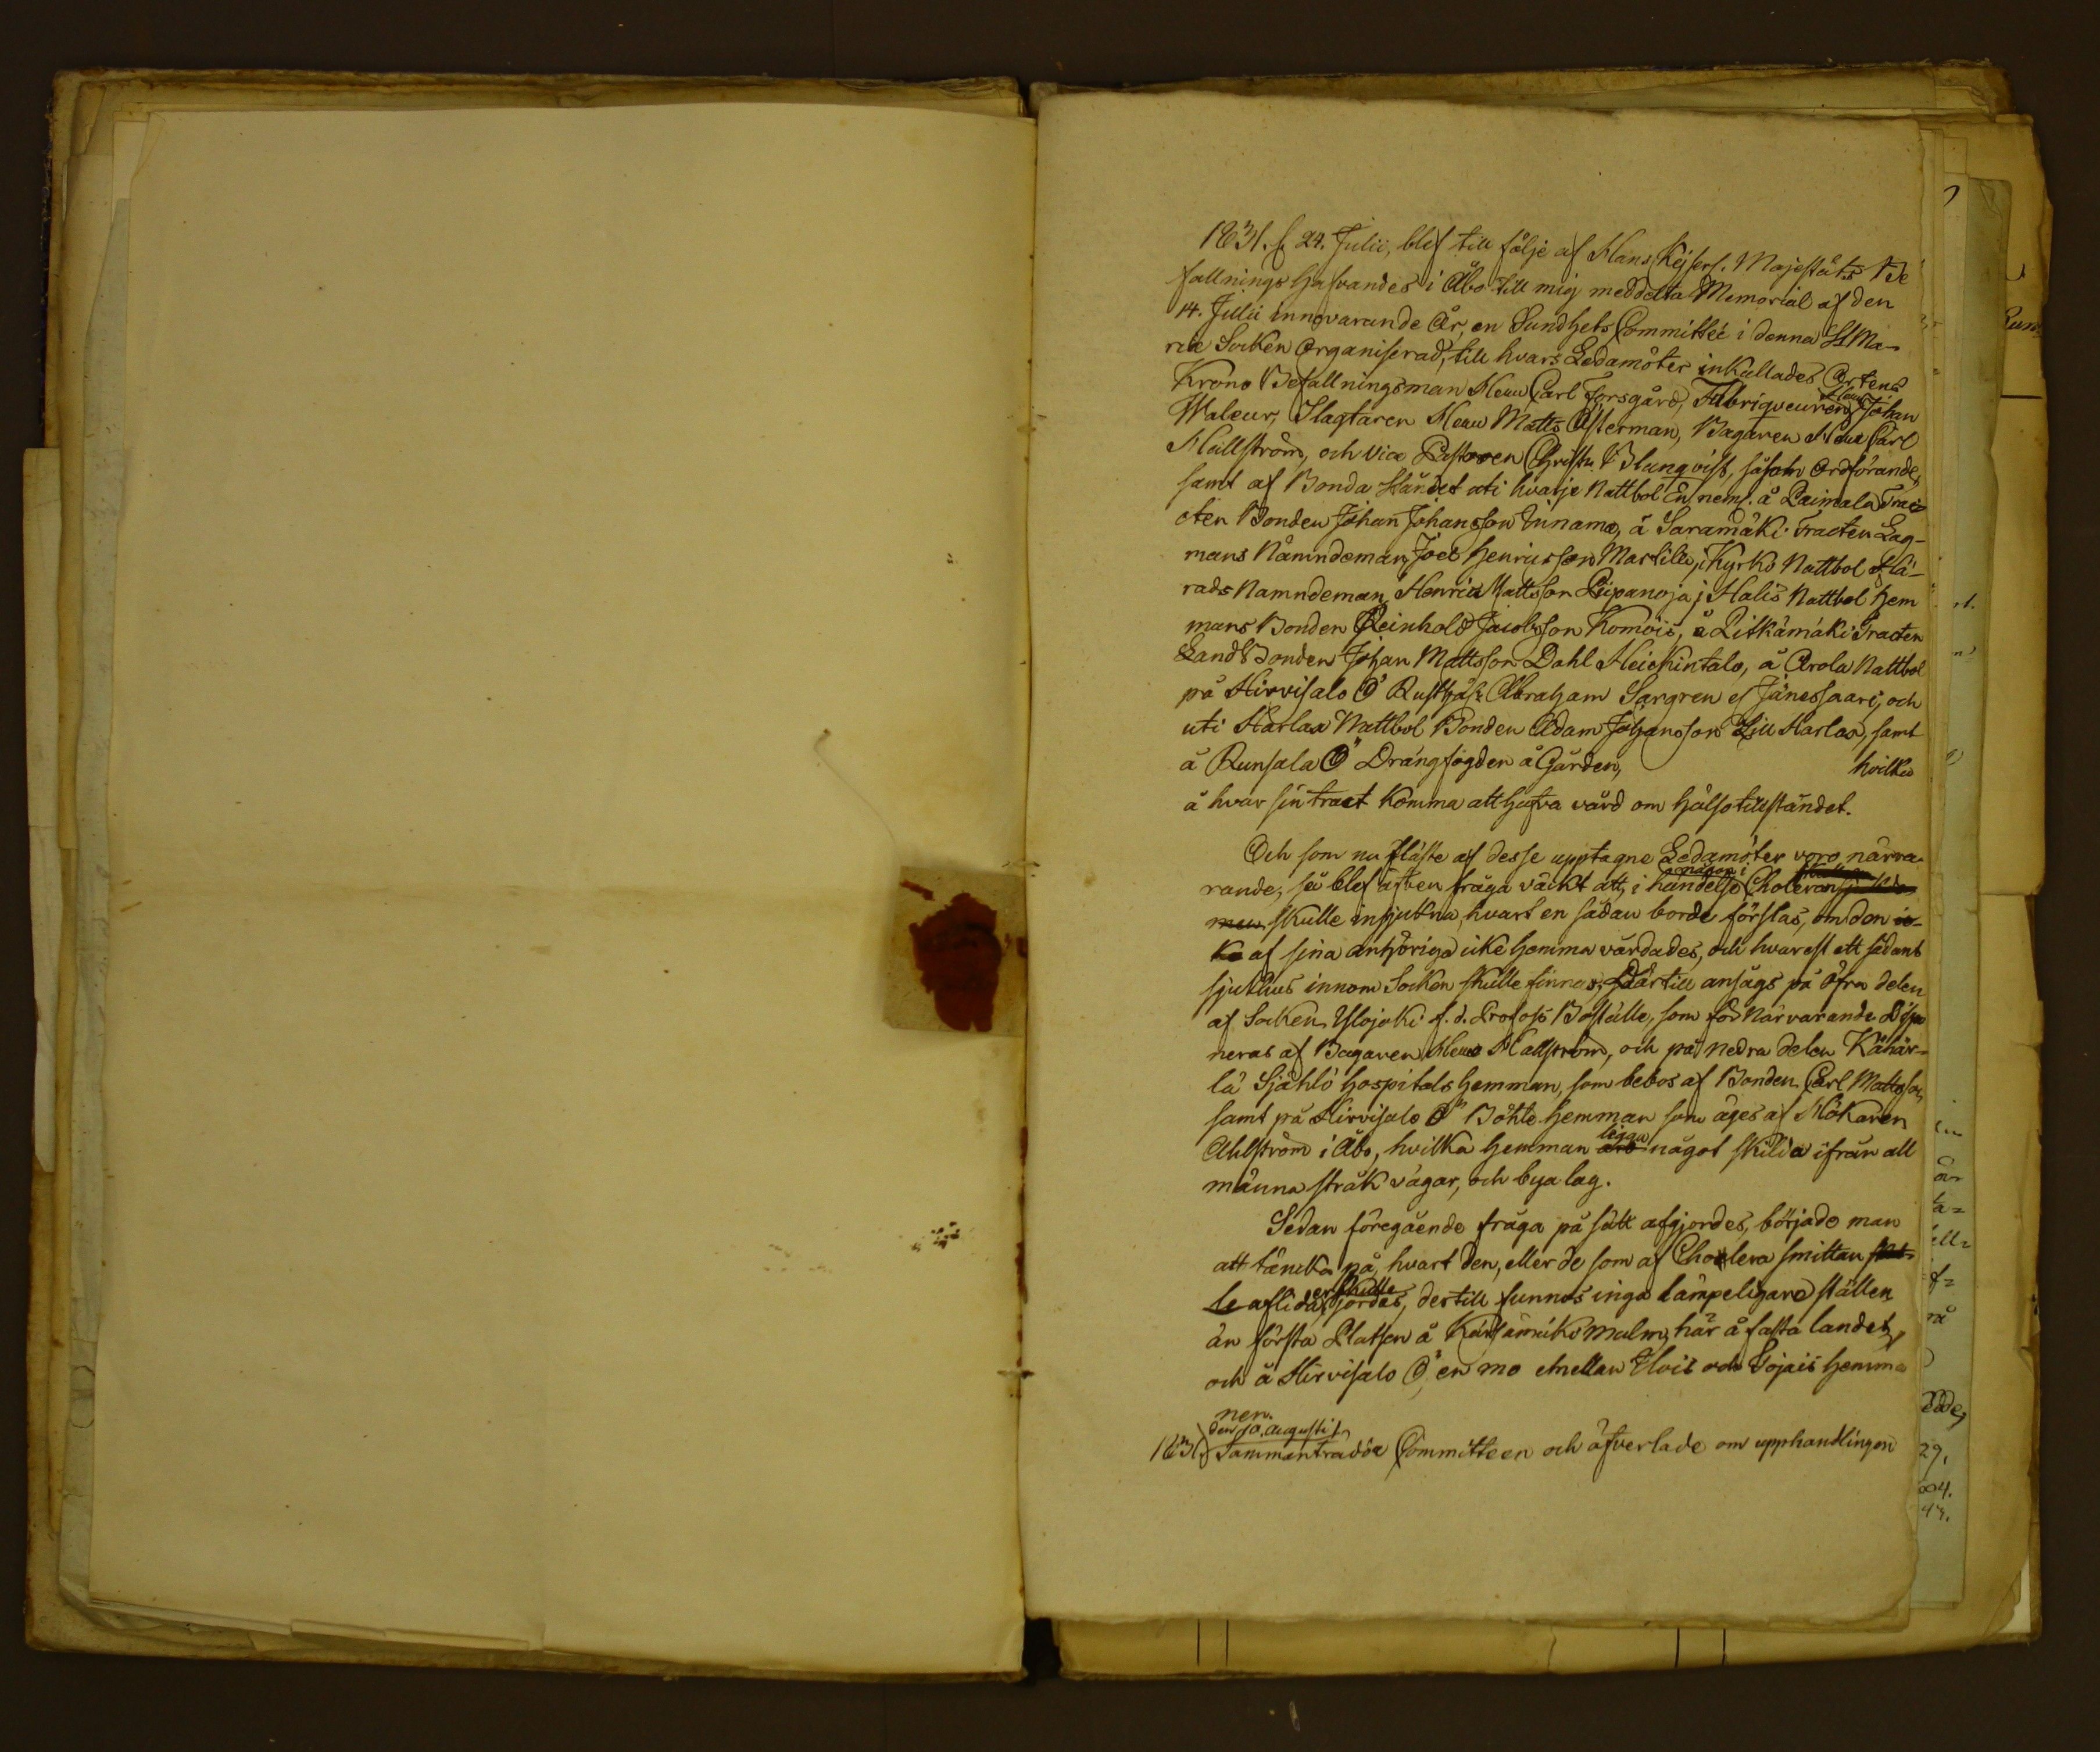 1831. d. 24. Julii, blef till följe af Hans Kejserl. Majestäts Be
fallningshafvandes i Åbo till mig meddelta Memorial af den
14. Julii innevarande År, en Sundhets Committée i denna St Ma-
riæ Socken Organiserad, till hvars Ledamöter inkallades Ortens
Krono Befallningsman Herr Carl Forsgård, Fabriqveuren Herr Johan
Waleur, Slagtaren Herr Matts Österman, Bagaren Herr Carl
Hallström, och Vice Pastoren Christ. Blunqvist, såsom Ordförande,
samt af Bonda Ståndet uti hvarje Nattbol En neml. å Paimala Trac-
cten Bonden Johan Johansson Innama, å Saramäki Tracten Lag-
mans Nämndeman Joel Henricsson Martila, i Kyrko Nattbol Hä-
rads Namndeman Henric Mattsson Piipanoja, i Halis Nattbol Hem
mans Bonden Reinhold Jacobsson Komois, å Pitkämäki Tracten
Landbonden Johan Mattsson Dahl Heickintalo, å Arola Nattbol
på Hirvisalo Ö Rusth. Abraham Sargren ef Jänessaari, och
uti Harlax Nattbol Bonden Adam Johansson Lill Harlax, samt
å Runsala Ö Drängfogden å Gården, hvilka
å hvar sin tract komma att hafva vård om hälsotillståndet.
Och som nu fläste af desse upptagne Ledamöter voro närva-
rande, så blef äfven fråga väckt att, i händelse någon i Choleran
skulle insjukna, hvart en sådan borde förslas, om den ic-
ke af sina anhöriga icke hemma vårdades, och hvarest ett sådant
sjukhus innom Socken skulle finnas, Därtill ansågs på öfra delen
af Socken Ylojoki f. d. Profoss Boställe, som för närvarande Dispo
neras af Bagaren Herr Hallström, och på nedra delen Kähär-
lä Själö Hospitals Hemman, som bebos af Bonden Carl Mattsson,
samt på Hirvisalo Ö Böhle Hemman som äges af Hökaren
Ahlström i Åbo, hvilka Hemman ligga något skilda ifrån all
männa stråk vägar, och bya lag.
Sedan föregående fråga på sätt afgjordes, började man
att täncka på, hvart den, eller de som af Cholera smittan skul-
le aflida, skulle jordas, dertill funnos inga lämpeligare ställen
än första Platsen å Kärsämäki malm, här å fasta landet,
och å Hirvisalo Ö, en mo emellan Illois och Lojais Hemma
nen.
1831 den 10. Augusti
Sammanträdde Committeen och öfverlade om upphandlingen